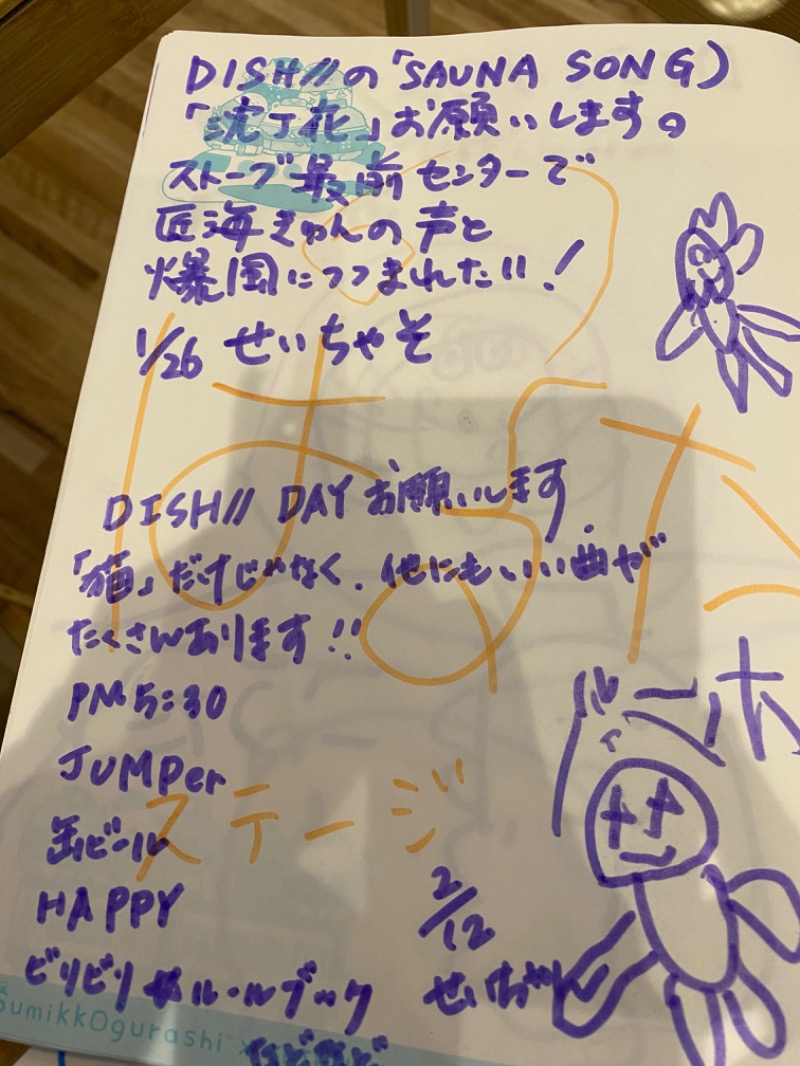 DISH//の「SAUNA SONG」
「沈丁花」お願いします。
ストーブ最前センターで
匠海きゅんの声と
爆風につつまれたい!!!
1/26 せいちゃそ
DISH// DAY お願いします.
「猫」だけじゃなく、他にもいい曲が
たくさんあります!!
PM5:30
JUMPer
缶ビール
HAPPY
ビリビリ☆ルールブック
などなど
2/12
せいちゃん
ステージ
umikkOgurashi